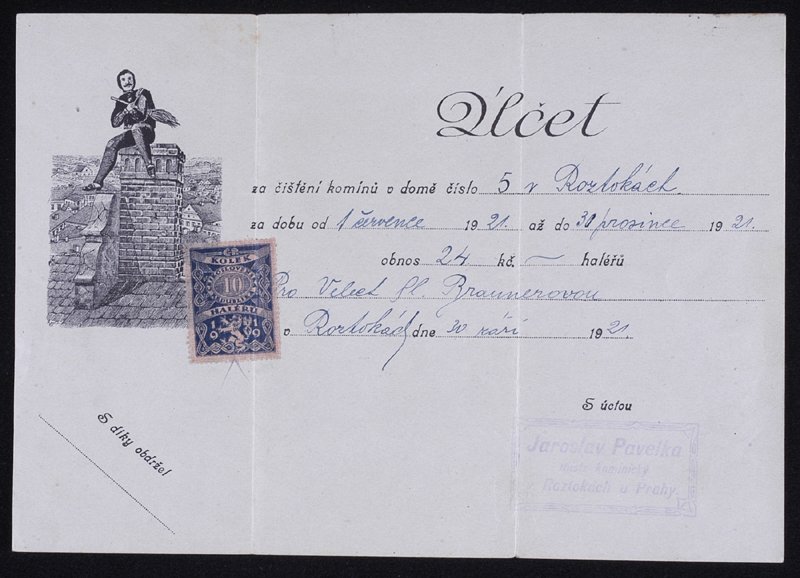 Účet
za čištění komínů v domě číslo 5 v Roztokách.
za dobu od 1 července 1921. až do 30 prosince 1921.
obnos 24 kč. — haléřů
Pro Velect Sl. Braunerovou
v Roztokách dne 30 září 1921.
KOLEK
10
HALÉŘŮ
1919
S díky obdržel
S úctou
Jaroslav Pavelka
mistr kominický
v Roztokách u Prahy.